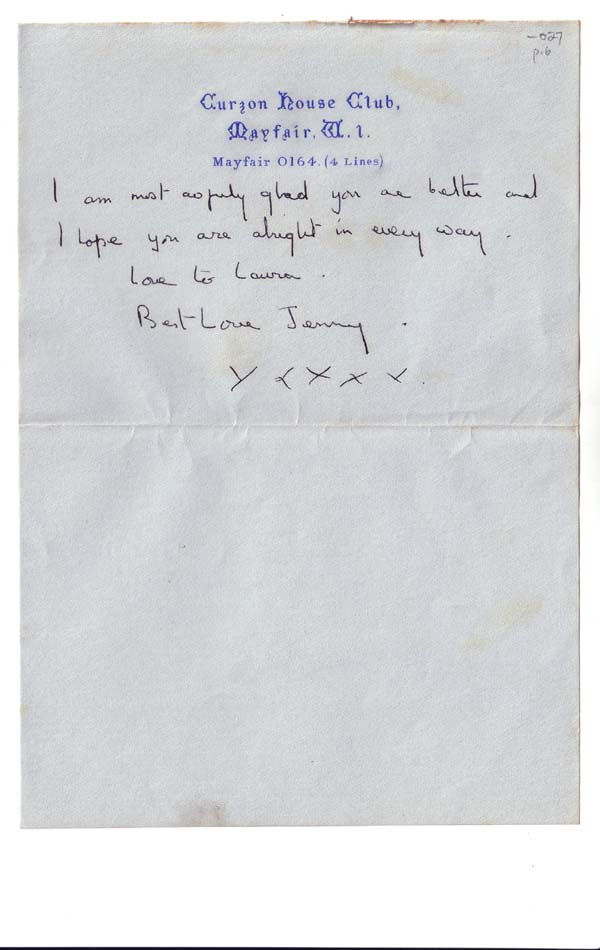 -027
p.6
Curzon House Club,
Mayfair, W. 1.
Mayfair 0164. (4 Lines)
I am most awfully glad you are better and
I hope you are alright in every way.
Love to Laura.
Best Love Jenny.
X X X X X.